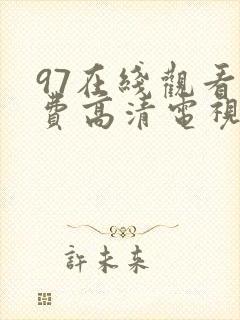 97在綫觀看
費高清電視
許未來